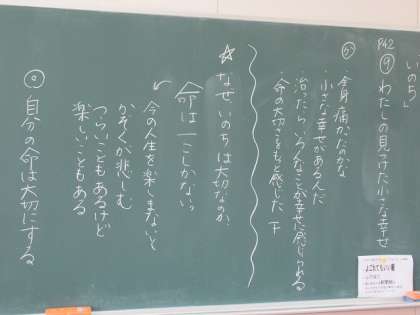 いのち
P42
⑨ わたしの見つけた小さな幸せ
か
全身痛かったのかな
・小さな幸せがあるんだ
治ったら いろんなことが幸せに感じられる
・命の大切さをもっと感じた
☆なぜ、いのちは大切なのか?
命は一つしかない。
今の人生を楽しまないと
かぞくが悲しむ
つらいこともあるけど
楽しいこともある
◎ 自分の命は大切にする
よごれてもいい服